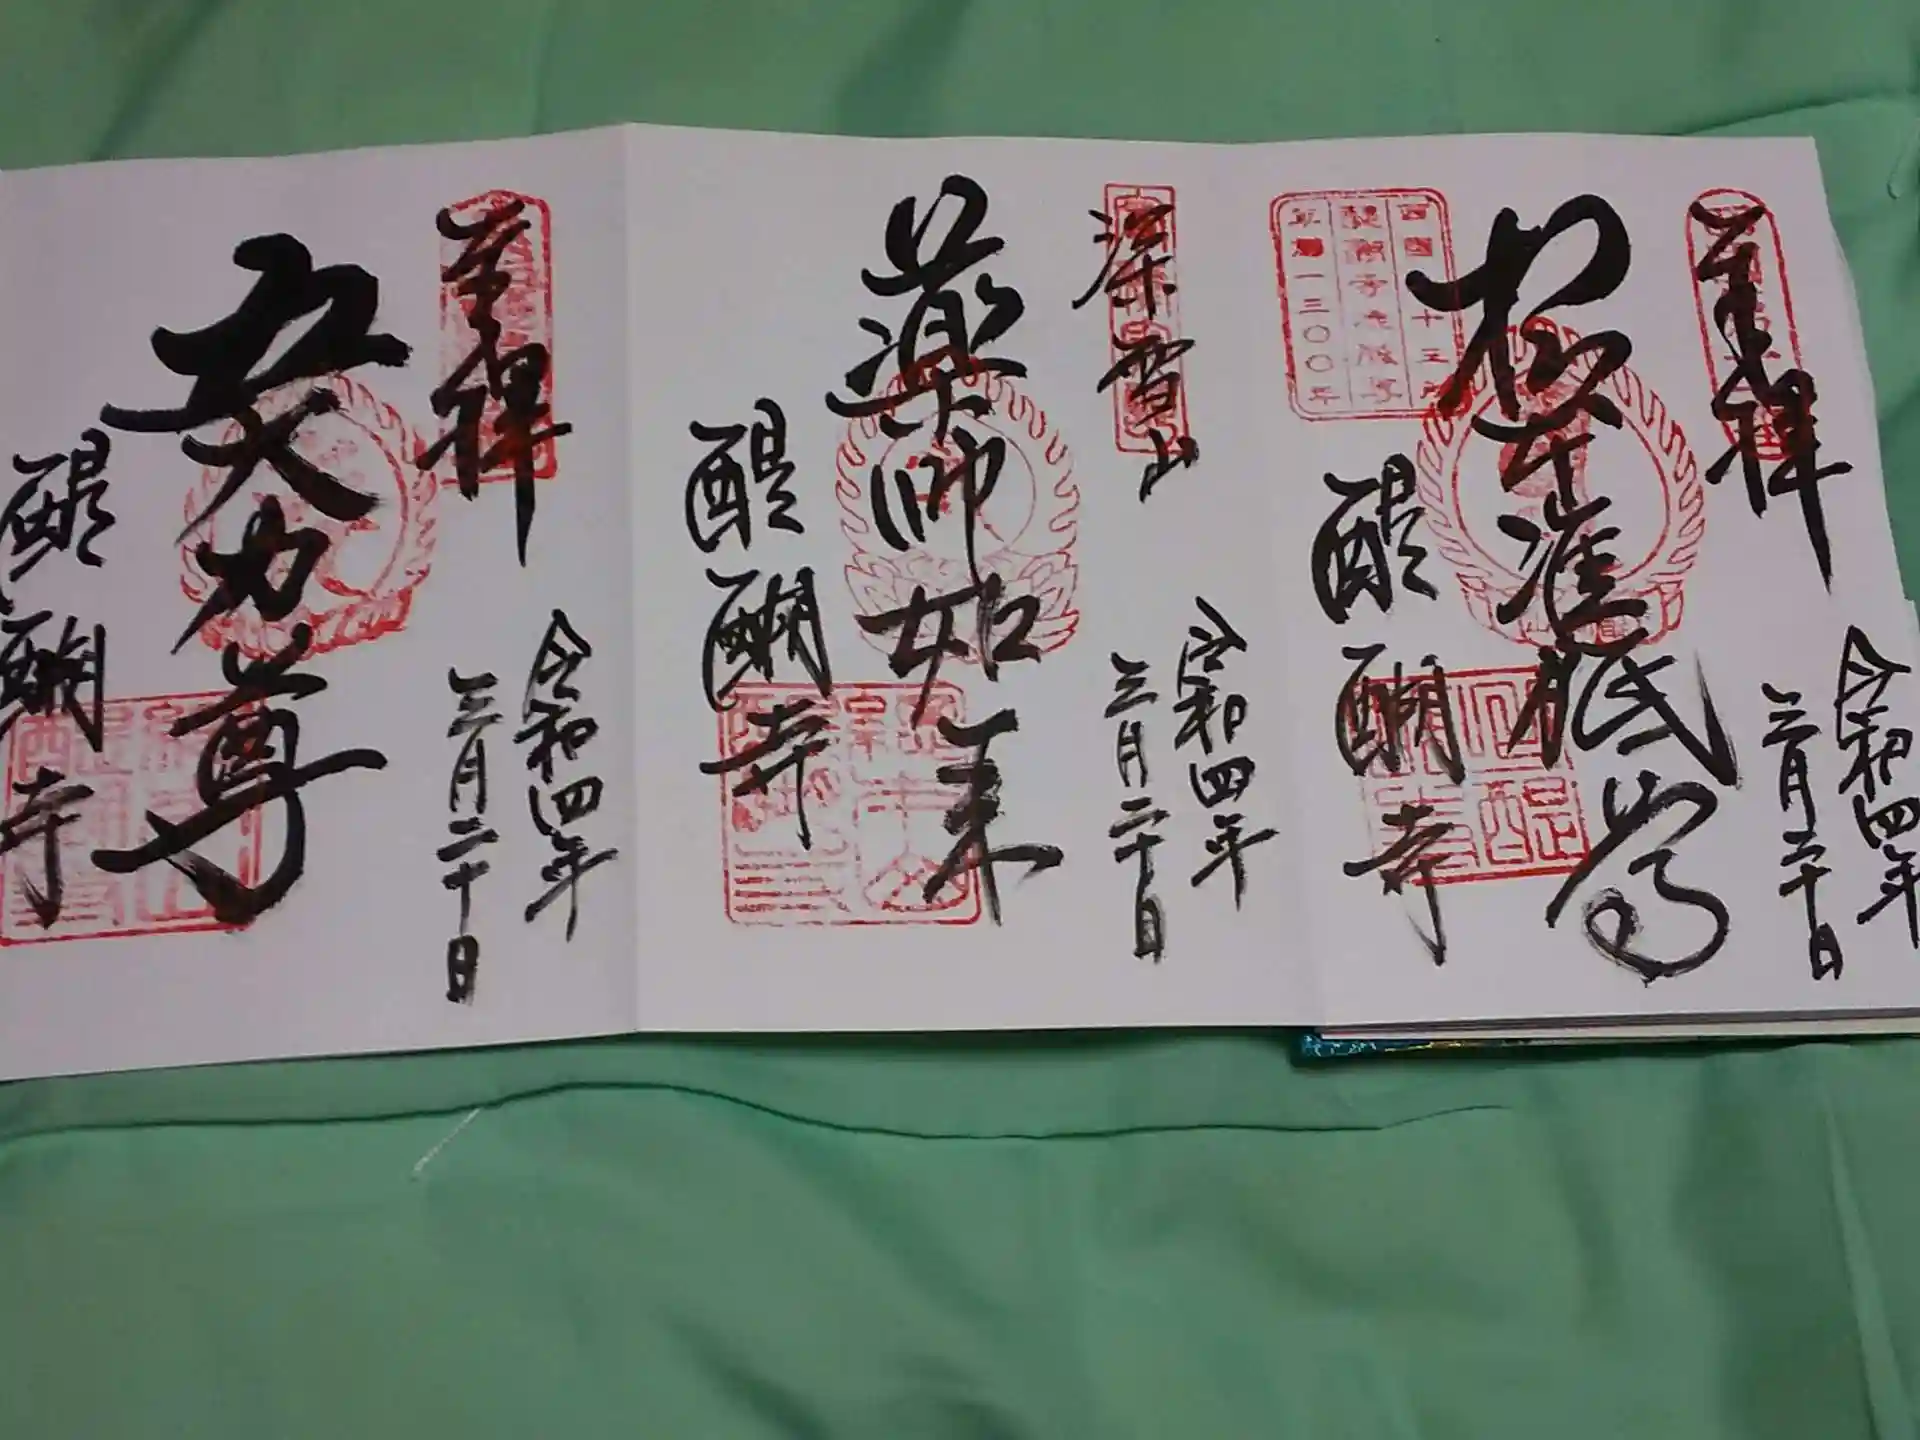 奉拝
令和四年
三月二十日
根本准胝尊
西国三十三所
醍醐寺准胝尊
醍醐寺
深雪山
令和四年
三月二十日
薬師如来
醍醐寺
奉拝
令和四年
三月二十日
五大力尊
醍醐寺